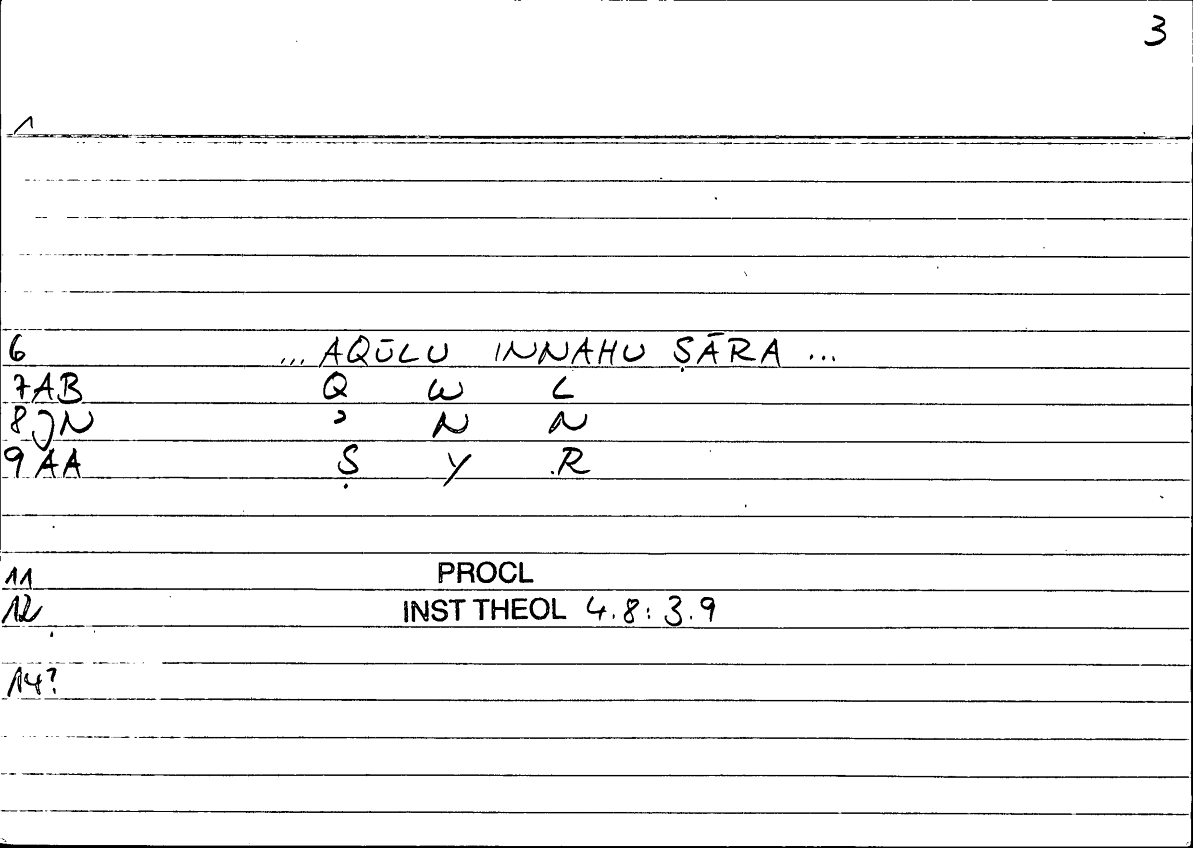 3
1
6 ... AQŪLU INNAHU ṢĀRA ...
7AB Q W L
8JN ʾ N N
9AA Ṣ Y R
11 PROCL
12 INST THEOL 4.8:3.9
14?